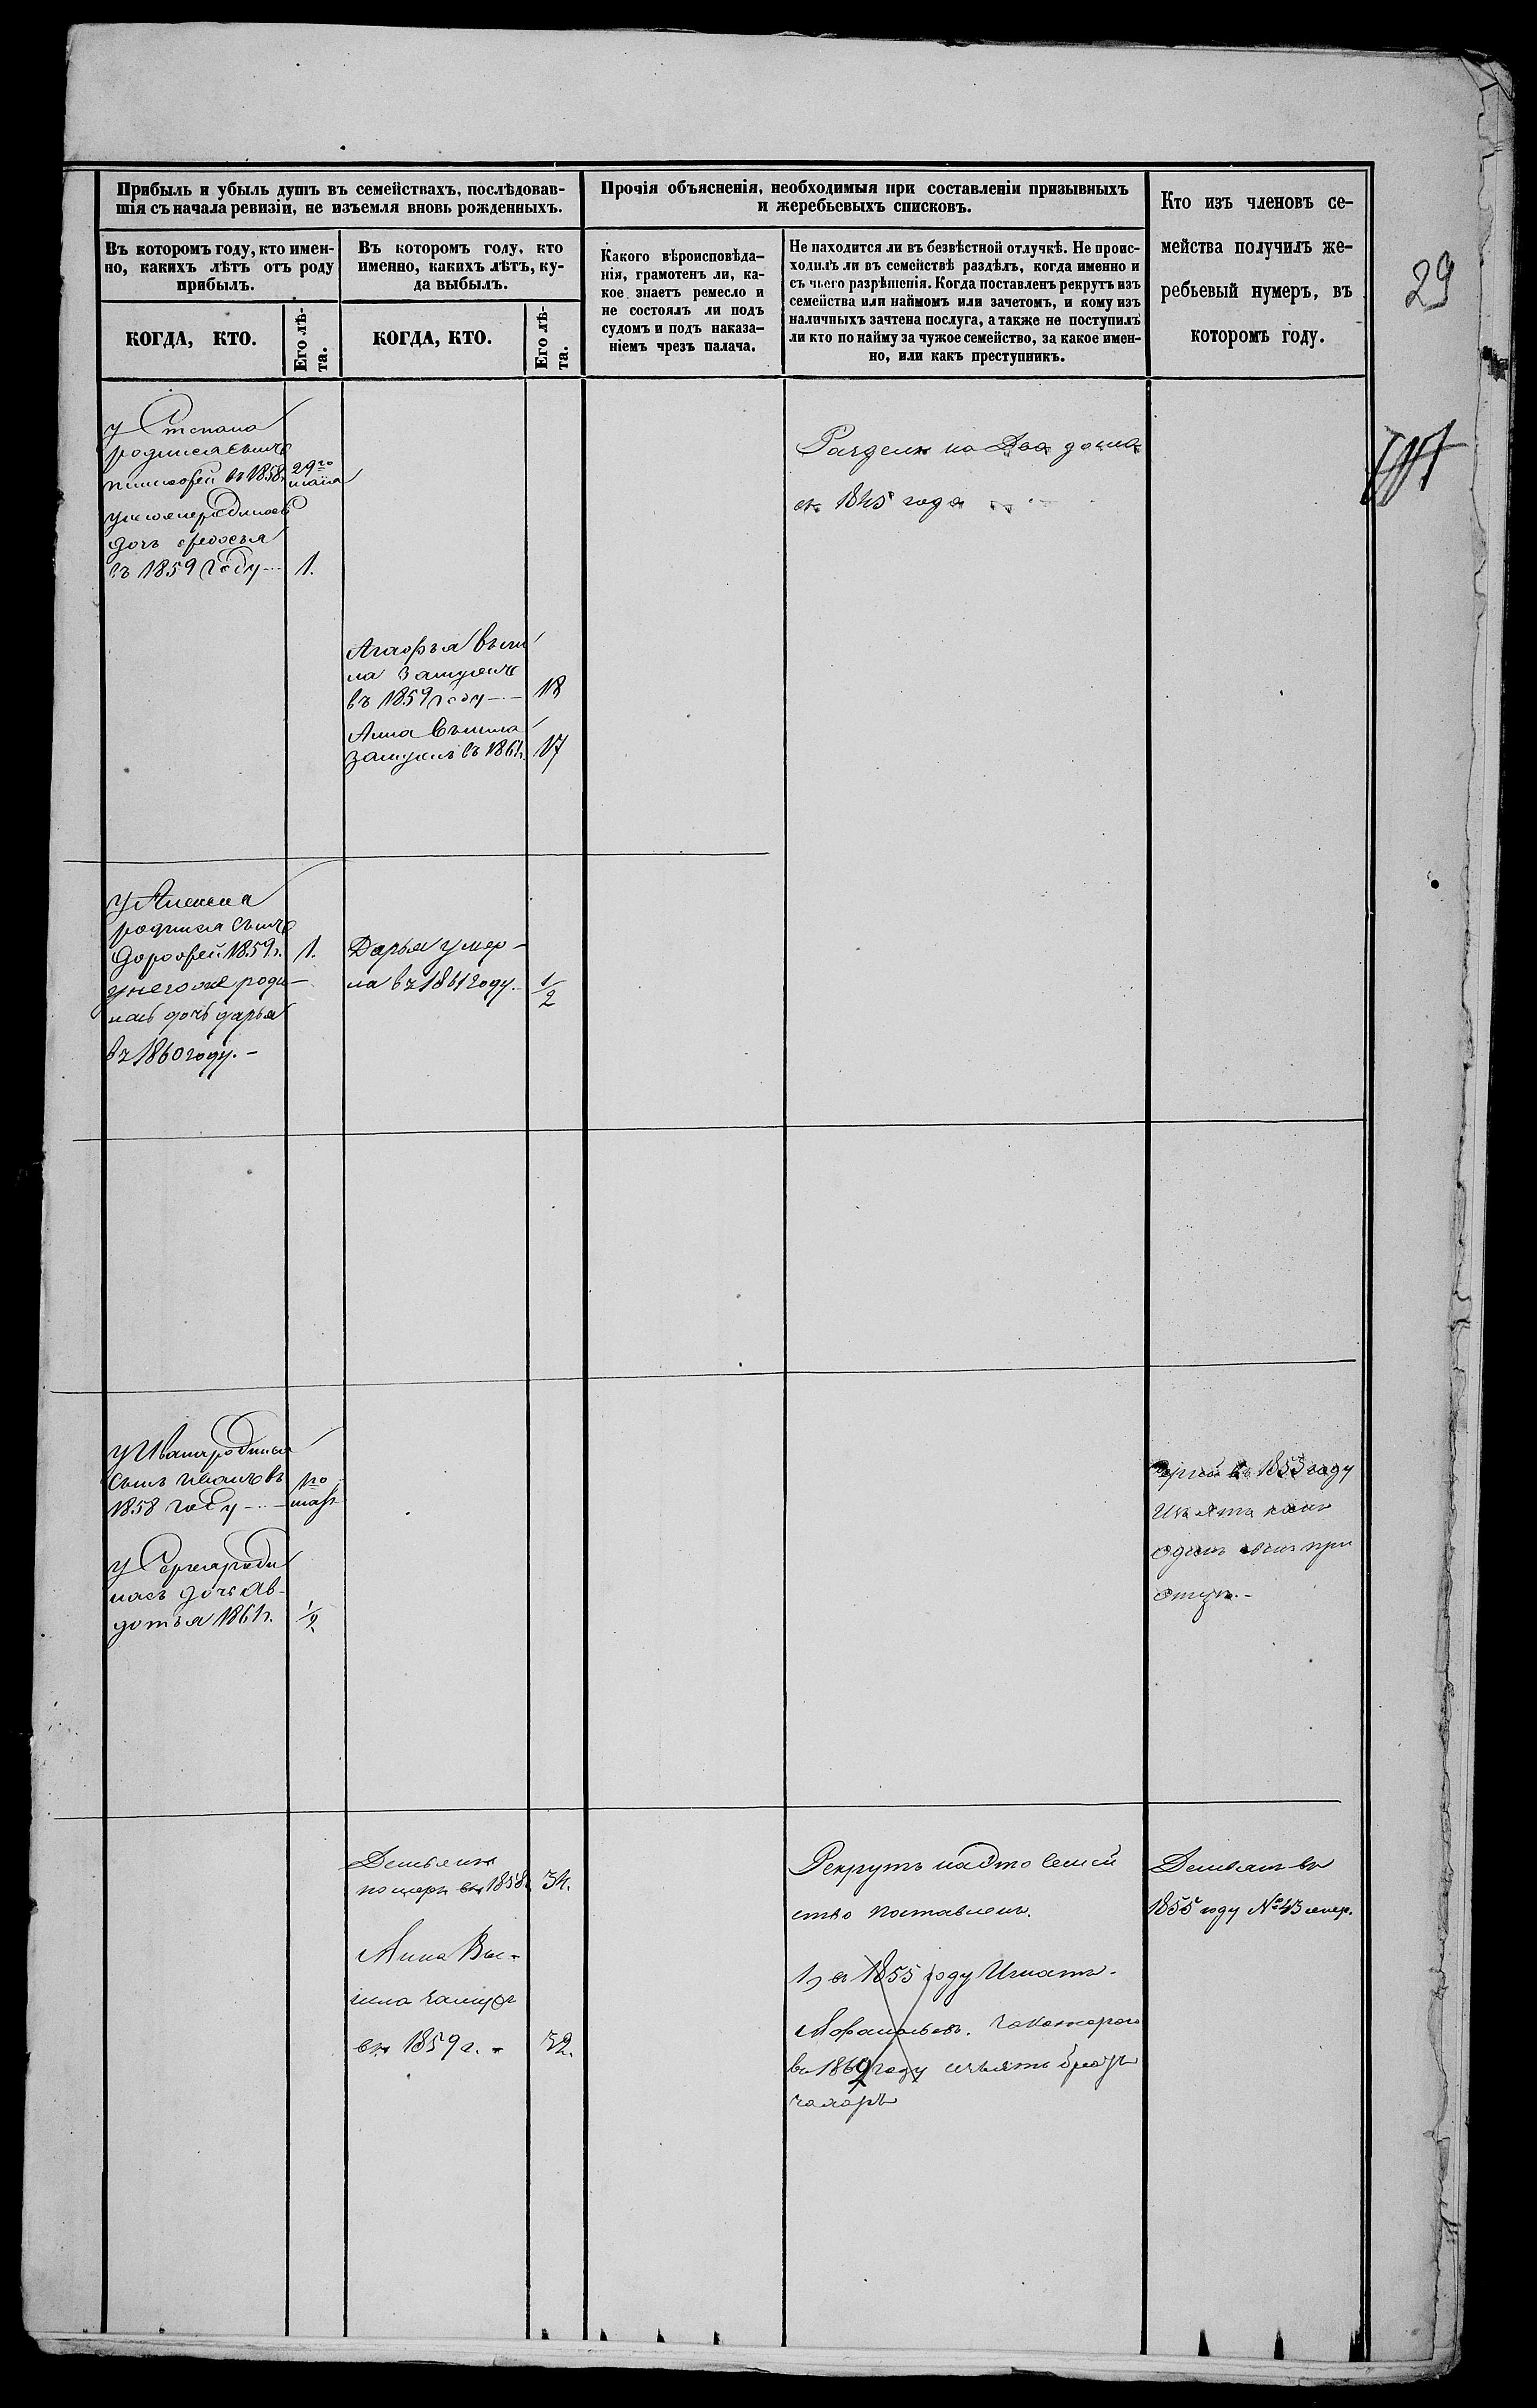 29
Прибыль и убыль душъ въ семействахъ, послѣдовав-
шія съ начала ревизіи, не изъемля вновь рожденныхъ.
Въ которомъ году, кто имен-
но, какихъ лѣтъ отъ роду
прибылъ.
КОГДА, КТО.
Его лѣ-
та.
Въ которомъ году, кто
именно, какихъ лѣтъ, ку-
да выбылъ.
КОГДА, КТО.
Его лѣ-
та.
Прочія объясненія, необходимыя при составленіи призывныхъ
и жеребьевыхъ списковъ.
Какого вѣроисповѣда-
нія, грамотенъ ли, ка-
кое знаетъ ремесло и
не состоялъ ли подъ
судомъ и подъ наказа-
ніемъ чрезъ палача.
Не находится ли въ безвѣстной отлучкѣ. Не проис-
ходилъ ли въ семействѣ раздѣлъ, когда именно и
съ чьего разрѣшенія. Когда поставленъ рекрутъ изъ
семейства или наймомъ или зачетомъ, и кому изъ
наличныхъ зачтена послуга, а также не поступилъ
ли кто по найму за чужое семейство, за какое имен-
но, или какъ преступникъ.
Кто изъ членовъ се-
мейства получилъ же-
ребьевый нумеръ, въ
которомъ году.
у Степана
родился сынъ
въ 1858 29го
дочь федосья
въ 1859 году 1.
Агафья вы
ла замужъ
въ 1859 году 18
Анна вышла
замужъ въ 1861г. 17
на два дома
1845 года
у Алексея
родился сынъ
дорофей 1859г. 1.
у него же роди-
лась дочь дарья
въ 1860 году.-
Дарья умер-
ла въ 1861 году.- 1/2
у Ивана родился
сынъ въ
1858 году
у Сергея роди
лась дочь Ав-
дотья 1861г. 1/2
въ 1853 году
одинъ сынъ при
отцѣ.-
Демьянъ
померъ въ 1858г. 34.
Анна Вы-
шла замужъ
въ 1859 г. - 32.
Рекрутъ семей
ство поставленъ.
1) въ 1855 году Игнатъ
за котораго
въ 1862 году братъ
Демьянъ въ
1855 году № 43